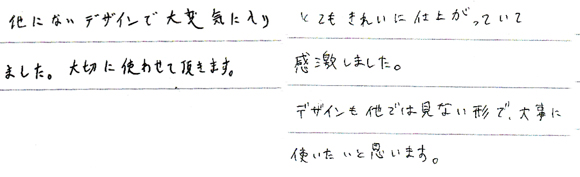 他にないデザインで大変気に入り
ました。大切に使わせて頂きます。
とてもきれいに仕上がっていて
感激しました。
デザインも他では見ない形で、大事に
使いたいと思います。